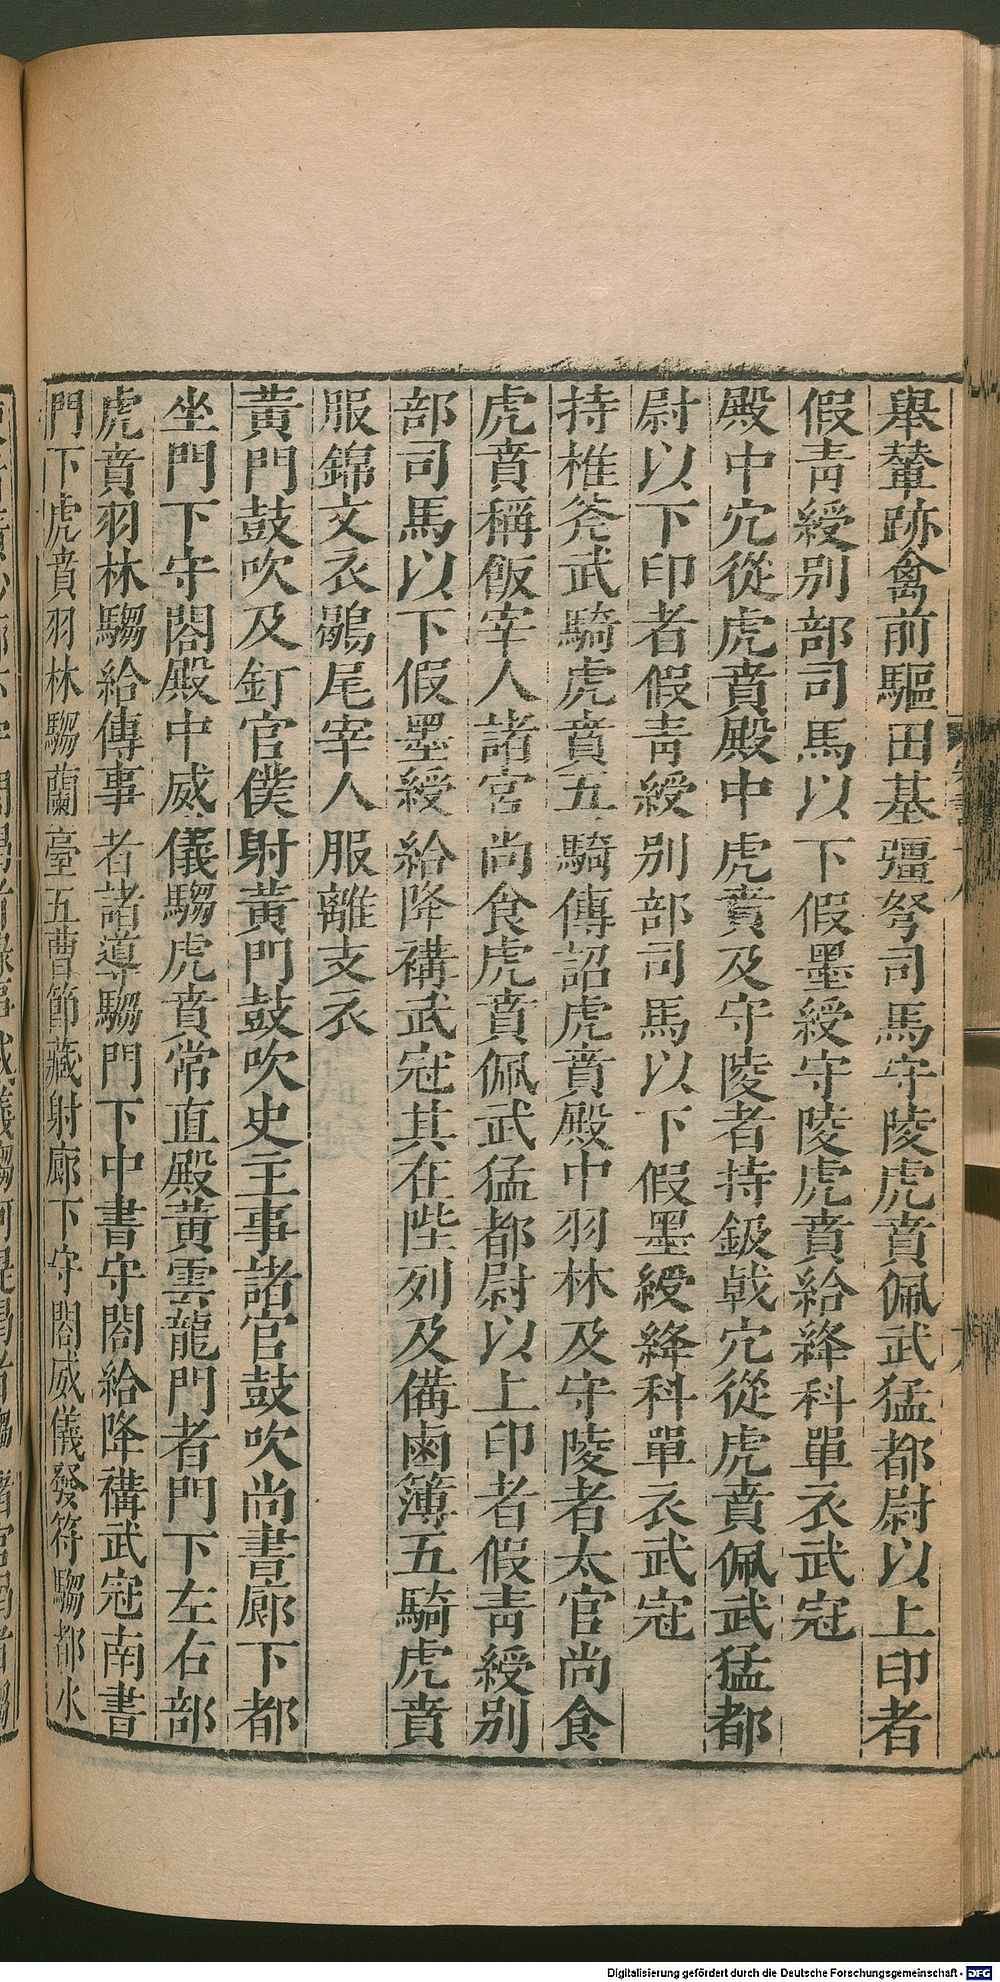 舉輦跡禽前驅由基彊弩司馬守陵虎賁佩武猛都尉以上印者
假青綬别部司馬以下假墨綬守陵虎賁給絳科單衣武冠
殿中宂從虎賁殿中虎賁及守陵者持鈒戟宂從虎賁佩武猛都
尉以下印者假青綬别部司馬以下假墨綬絳科單衣武冠
持椎斧武騎虎賁五騎傳詔虎賁殿中羽林及守陵者太官尚食
虎賁稱飯宰人諸宫尚食虎賁佩武猛都尉以上印者假青綬别
部司馬以下假墨綬給降褠武冠其在陛列及備鹵簿五騎虎賁
服錦文衣鶡尾宰人服離支衣
黄門鼓吹及釘官僕射黄門鼓吹史主事諸官鼓吹尚書廊下都
坐門下守閤殿中威儀騶虎賁常直殿黄雲龍門者門下左右部
虎賁羽林騶給傳事者諸導騶門下中書守閤給降褠武冠南書
門下虎賁羽林騶蘭臺五曹節藏射廊下守閤威儀發符騶都水
Digitalisierung gefördert durch die Deutsche Forschungsgemeinschaft - DFG